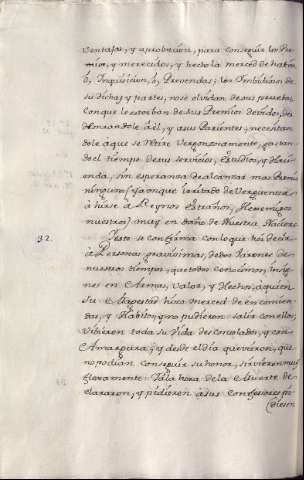 ventajas, y aprobacion, para conseguir los Pre-
mios, y merecidos, y hecho la merced de habito
ó, Inquisicion, ó, Prevendas; los Imbidiosos de
sus dichas y partes, no se olvidan de sus pruebas
con que le estorban de sus Premios devidos, des-
honrandole à el, y a sus Parientes, necesitan
dole à que se retire Vergonzosamente, gastan
do el tiempo de sus servicios, Estudios, y Hazi-
enda, sin esperanza de alcanzar mas Premio
ninguno (ya que la de Verguenza
à hirse à Reynos estraños, Henemigos
nuestros) muy en daño de Nuestra
32. Esto se confirma con lo que hoi decir
à Personas gravisimas, de dos Varones de
nuestros tiempos, que todos conocimos, Insig-
nes en Armas, Valor, y Hechos, a quien
su Magestad hizo merced de encomien-
das, y Habitos, y no pudieron salir con ellos,
vivieron toda su Vida desconsolados, y con
Amargura; y desde el dia que vieron, que
no podian conseguir su honor, sirvieron muy
floxamente: Y à la hora de la Muerte de-
clararon, y pidieron a sus Confesores pi-
diesen